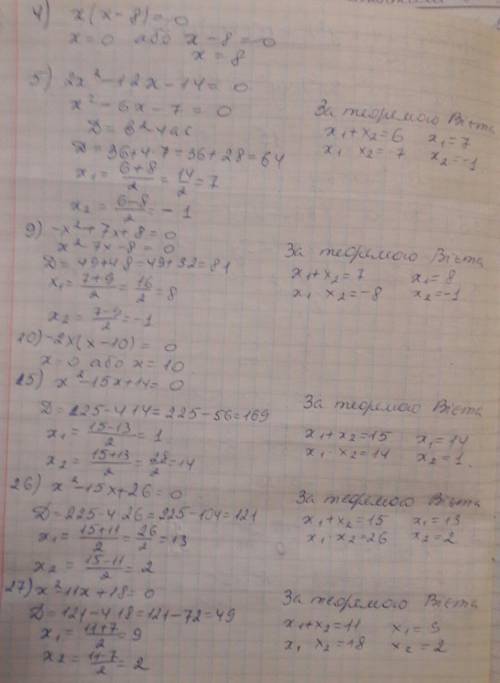 4) x(x-8)=0
x=0 або x-8=0
x=8
5) 2x²-12x-14=0
x²-6x-7=0
D=в²-4ac
D=36+4·7=36+28=64
x₁=(6+8)/2=14/2=7
x₂=(6-8)/2=-1
За теоремою Вієта
x₁+x₂=6 x₁=7
x₁ x₂=-7 x₂=-1
9) -x²+7x+8=0
x²-7x-8=0
D=49+4·8=49+32=81
x₁=(7+9)/2=16/2=8
x₂=(7-9)/2=-1
За теоремою Вієта
x₁+x₂=7 x₁=8
x₁ x₂=-8 x₂=-1
20) -2x(x-10)=0
x=0 або x=10
25) x²-15x+14=0
D=225-4·14=225-56=169
x₁=(15-13)/2=1
x₂=(15+13)/2=28/2=14
За теоремою Вієта
x₁+x₂=15 x₁=14
x₁·x₂=14 x₂=1
26) x²-15x+26=0
D=225-4·26=225-104=121
x₁=(15+11)/2=26/2=13
x₂=(15-11)/2=2
За теоремою Вієта
x₁+x₂=15 x₁=13
x₁·x₂=26 x₂=2
27) x²-11x+18=0
D=121-4·18=121-72=49
x₁=(11+7)/2=9
x₂=(11-7)/2=2
За теоремою Вієта
x₁+x₂=11 x₁=9
x₁ x₂=18 x₂=2